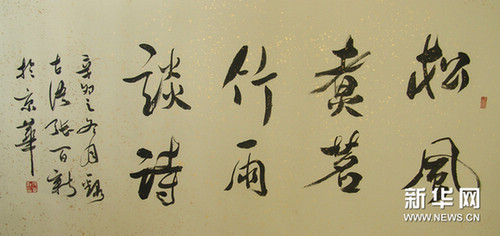 松風
煮茗
竹雨
談詩
辛卯之冬月録
古语張百新
於京華
新华网
WWW.NEWS.CN